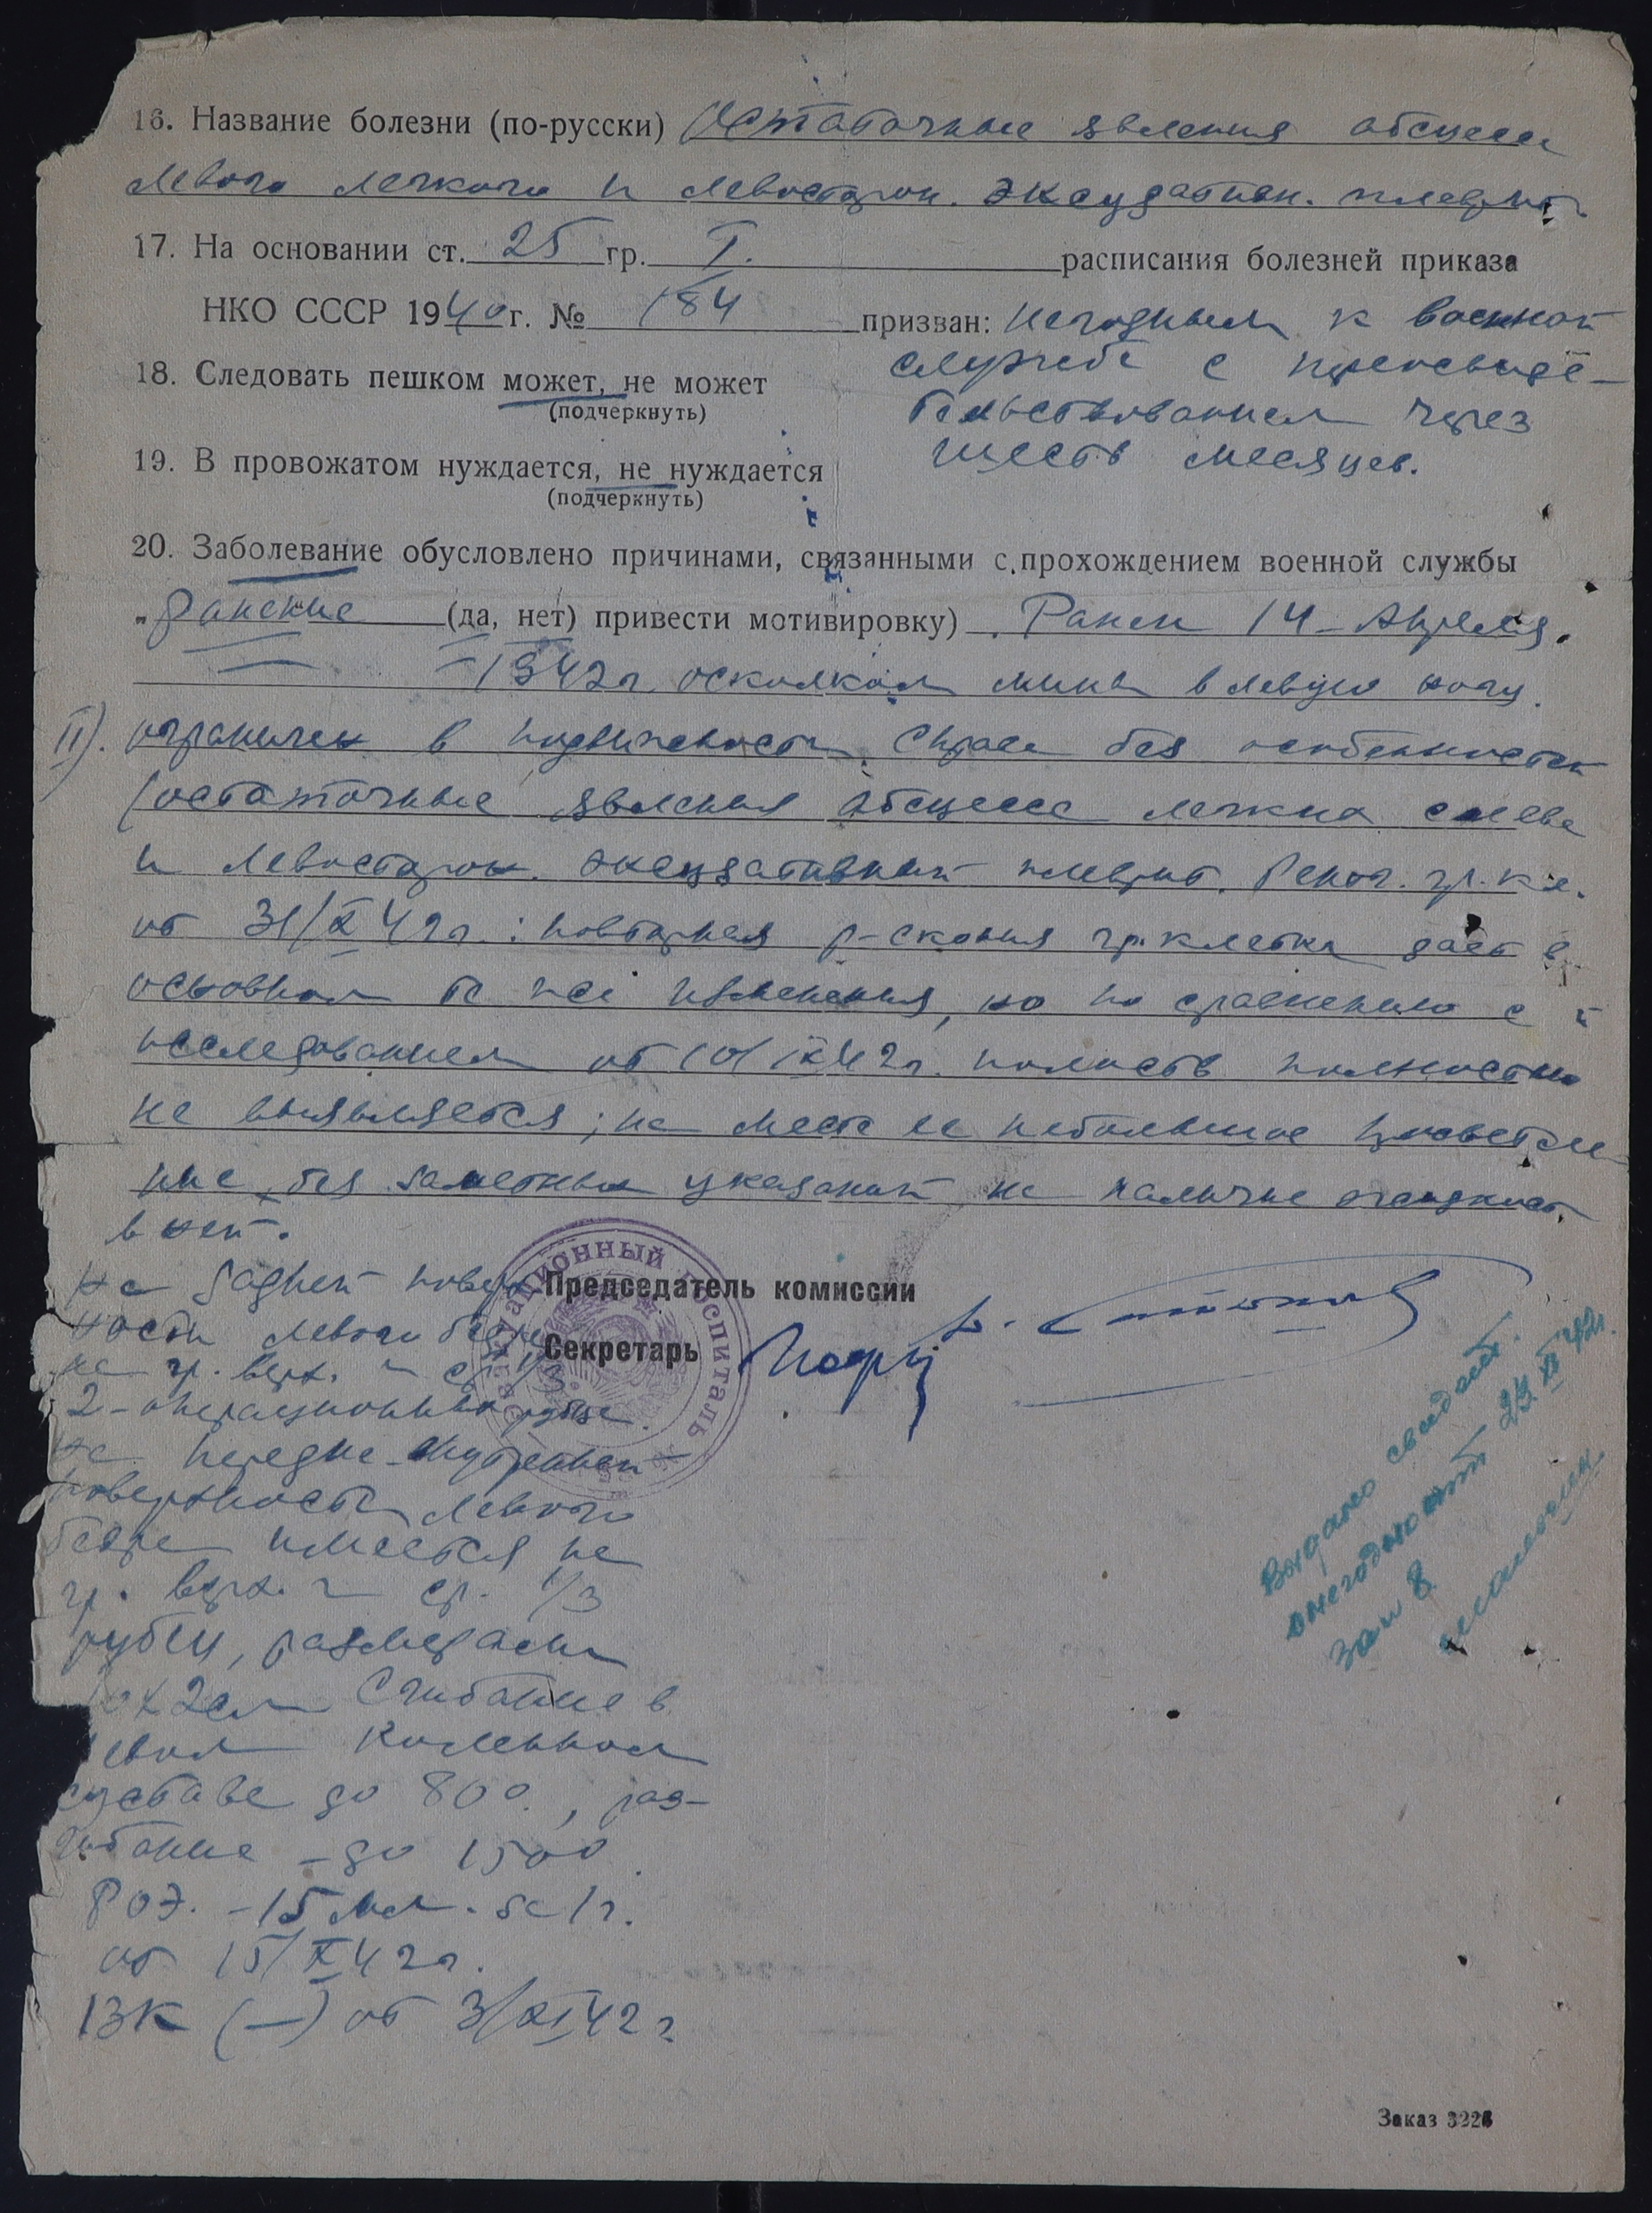 16. Название болезни (по-русски) Остаточные явления абсцесса
левого легкого и левосторон. эксудативн. плеврит
17. На основании ст. 25 гр. I. расписания болезней приказа
НКО СССР 1940 г. № 184 призван: негодным к военной
службе с переосвиде-
тельствованием через
шесть месяцев.
18. Следовать пешком может, не может
(подчеркнуть)
19. В провожатом нуждается, не нуждается
(подчеркнуть)
20. Заболевание обусловлено причинами, связанными с прохождением военной службы
„ранение (да, нет) привести мотивировку) Ранен 14 – Апреля
1942г. осколком мины в левую ногу.
II). ограничен в подвижности. Справа без особенностей
(остаточные явления абсцесса легких слева
и левосторон. эксудативный плеврит. Рентг. гр. кл.
от 31/X 42г.: повторная р-скопия гр. клетки дает в
основном те же изменения, но по сравнению с
исследованием от 10/IX 42г. полость полностью
не выявляется; на месте ее небольшое просветле-
ние, без заметных указаний на наличие жидкост.
в ней.
На задней поверх-
ности левого бедра
на гр. верх. и ср. 1/3
2-операционных рубца.
На передне-внутренней
поверхности левого
бедра имеется на
гр. верх. и ср. 1/3
рубец, размерами
2см Сгибание в
левом коленном
суставе до 80°, раз-
гибание – до 150°.
РОЭ. – 15 мм. за 1г.
от 15/X 42г.
ВК (—) от 3/XI 42г
Эвакуационный госпиталь
Председатель комиссии
Секретарь
Выдано свидет.
о негодности 23 XI 42г.
Зам 8
Заказ 3226